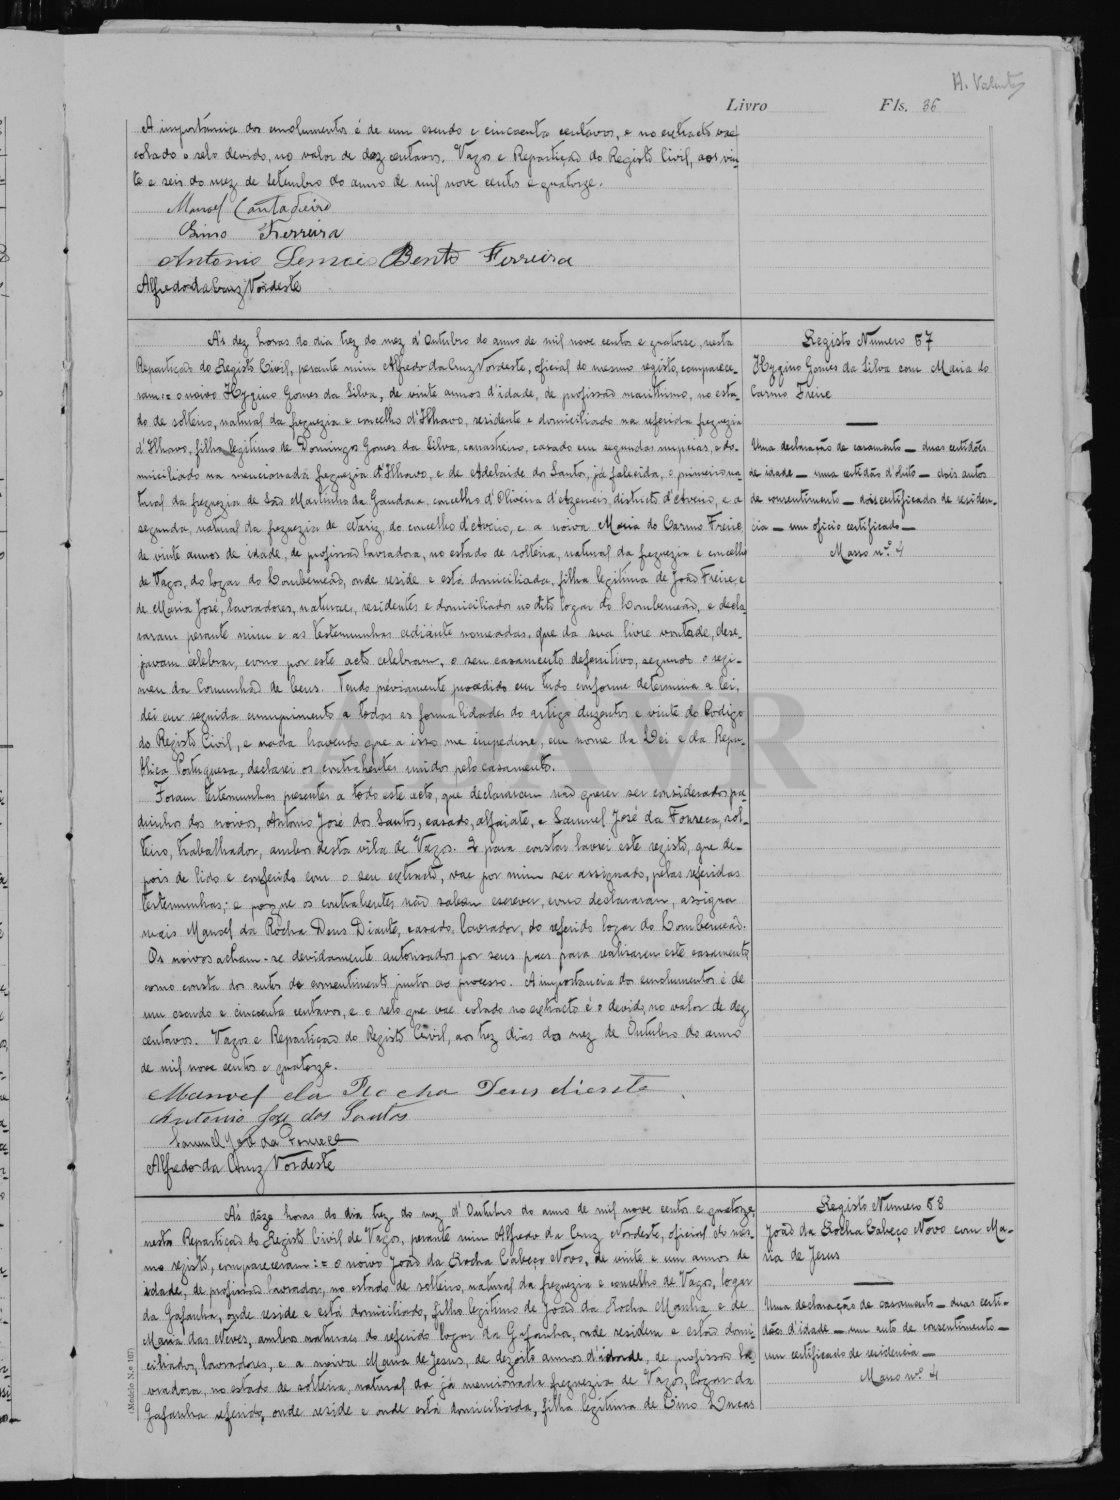 H. Valente
Livro Fls. 36
A importancia dos emolumentos é de um escudo e cincoenta centavos, e no extracto vae
colado o selo devido, no valor de dez centavos. Vagos e Repartição do Registo Civil, aos vin-
te e seis do mez de setembro do anno de mil nove centos e quatorze.
Manoel
Ferreira
Antonio Lemos Bento Ferreira
Alfredo da Cruz Nordeste
A's dez horas do dia trez do mez d'Outubro do anno de mil nove centos e quatorse, nesta
Repartição do Registo Civil, perante mim Alfredo da Cruz Nordeste, oficial do mesmo registo, comparece-
ram:= o noivo Hygino Gomes da Silva, de vinte annos d'idade, de profissão maritimo, no esta-
do de solteiro, natural da freguezia e concelho d'Ilhavo, residente e domiciliado na referida freguezia
d'Ilhavo, filho legitimo de Domingos Gomes da Silva, casado em segundas nupcias, e do-
miciliado na mencionada freguezia d'Ilhavo, e de Adelaide do Santos, já falecida, o primeiro na-
tural da freguezia de São Martinho da Gandara, concelho d'Oliveira d'Azemeis, districto d'Aveiro, e a
segunda, natural da freguezia de Nariz, do concelho d'Aveiro, e a noiva Maria do Carmo Freire,
de vinte annos de idade, de profissão lavradora, no estado de solteira, natural da freguezia e concelho
de Vagos, do logar do Lombomeão, onde reside e está domiciliada, filha legitima de João Freire, e
de Maria José, lavradores, naturaes, residentes e domiciliados no dito logar do Lombomeão, e decla-
raram perante mim e as testemunhas adiante nomeadas, que da sua livre vontade, dese-
javam celebrar, como por este acto celebram, o seu casamento definitivo, segundo o regi-
men da Comunhão de bens. Tendo préviamente procedido em tudo conforme determina a lei,
dei em seguida cumprimento a todas as formalidades do artigo duzentos e vinte do Codigo
do Registo Civil, e nada havendo que a isso me impedisse, em nome da Lei e da Repu-
blica Portuguesa, declarei os contrahentes unidos pelo casamento.
Foram testemunhas presentes a todo este acto, que declararam não querer ser considerados pa-
drinhos dos noivos, Antonio José dos Santos, casado, alfaiate, e Samuel José da Fonseca, sol-
teiro, trabalhador, ambos desta vila de Vagos. E para constar lavrei este registo, que de-
pois de lido e conferido com o seu extracto, vae por mim ser assignado, pelas referidas
testemunhas; e porque os contrahentes não sabem escrever, como declararam, assigna
mais Manoel da Rocha Deus Diante, casado, lavrador, do referido logar do Lombomeão.
Os noivos acham-se devidamente autorisados por seus paes para realisarem este casamento
como consta dos autos de consentimento juntos ao processo. A importancia dos emolumentos é de
um escudo e cincoenta centavos, e o selo que vae colado no extracto é o devido, no valor de dez
centavos. Vagos e Repartição do Registo Civil, aos trez dias do mez de Outubro do anno
de mil nove centos e quatorze.
Manoel da Rocha Deus diente
Antonio Joze dos Santos
Samuel José da Fonseca
Alfredo da Cruz Nordeste
Registo Numero 87
Hygino Gomes da Silva com Maria do
Carmo Freire
Uma declaração de casamento — duas certidões
de idade — uma certidão d'obito — dois autos
de consentimento — dois certificados de residen-
cia — um oficio certificado —
Masso nº 4
A's dôze horas do dia trez do mez d'Outubro do anno de mil nove centos e quatorze,
nesta Repartição do Registo Civil de Vagos, perante mim Alfredo da Cruz Nordeste, oficial do mes-
mo registo, compareceram:= o noivo João da Rocha Cabeço Novo, de vinte e um annos de
idade, de profissão lavrador, no estado de solteiro, natural da freguezia e concelho de Vagos, logar
da Gafanha, onde reside e está domiciliado, filho legitimo de João da Rocha e de
Maria das Neves, ambos naturaes do referido logar da Gafanha, onde residem e estão domi-
ciliados, lavradores, e a noiva Maria de Jesus, de dezoito annos d'idade, de profissão la-
vradora, no estado de solteira, natural da já mencionada freguezia de Vagos, logar da
Gafanha referido, onde reside e onde está domiciliada, filha legitima de Lino Lucas
Registo Numero 88
João da Rocha Cabeço Novo com Ma-
ria de Jesus
Uma declaração de casamento — duas certi-
dões d'idade — um auto de consentimento —
um certificado de residencia —
Masso nº 4
(Modelo N.º 107)
ADAVR